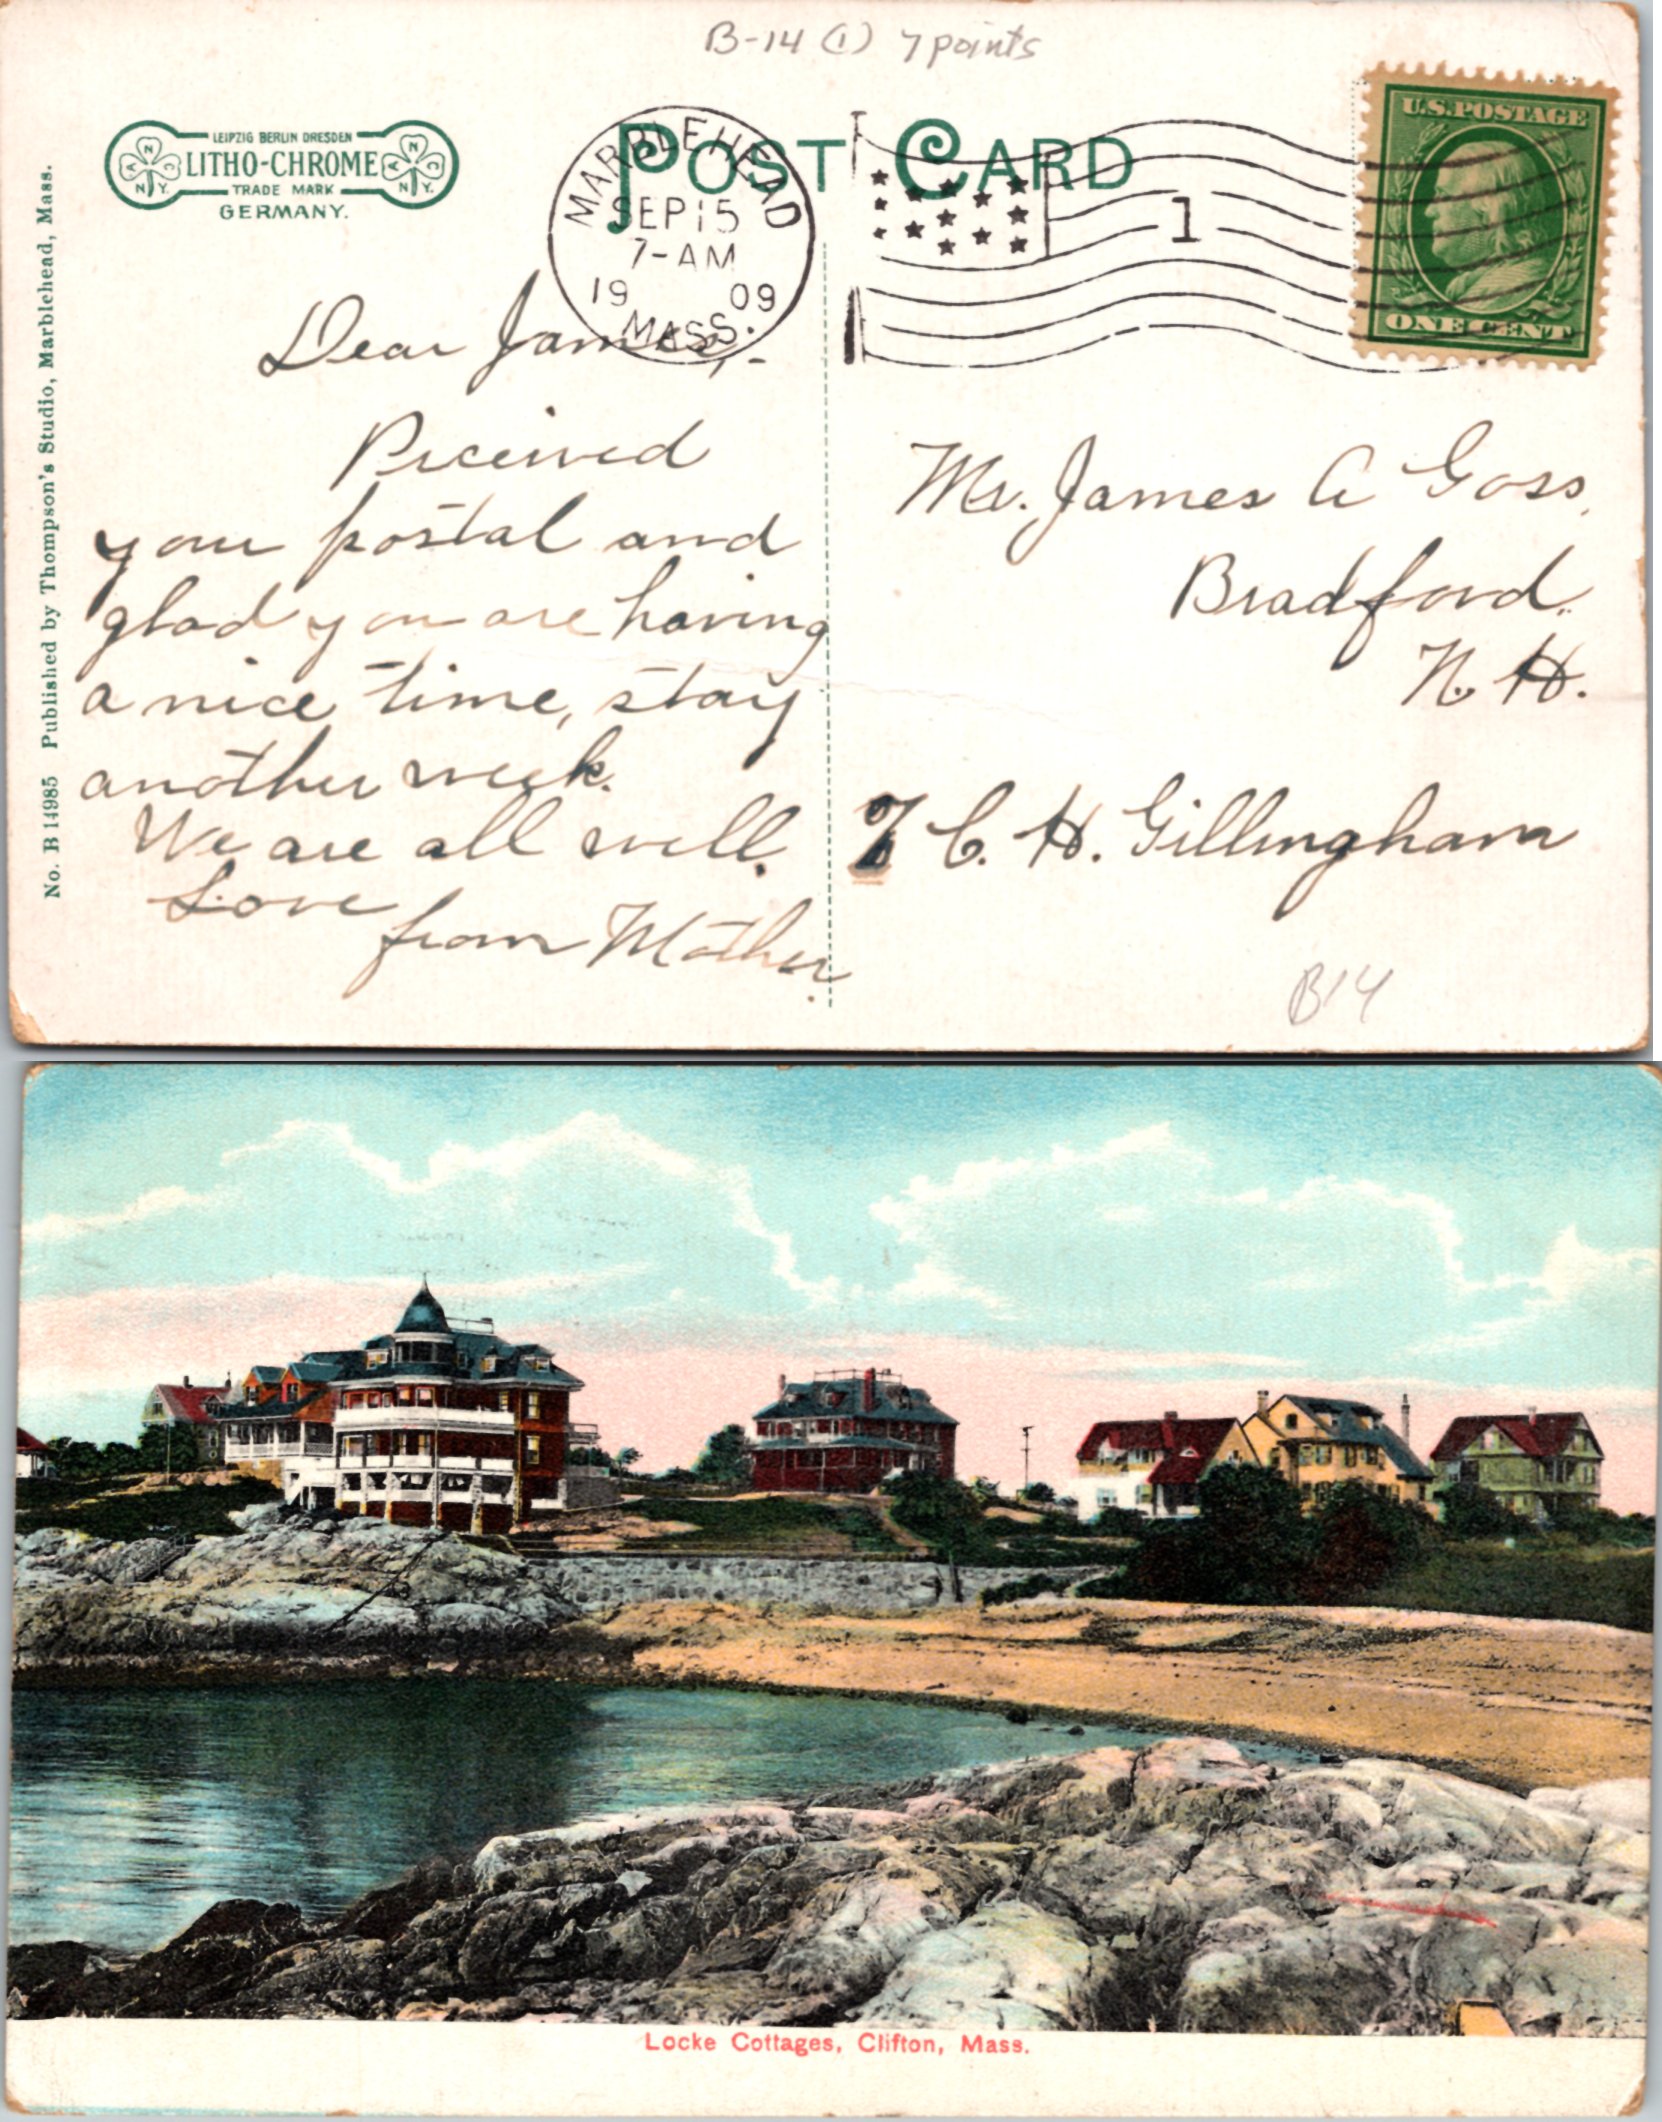 B-14 (1) 7 points
LEIPZIG BERLIN DRESDEN
LITHO-CHROME
TRADE MARK
GERMANY.
ANC
N.Y.
ANC
N.Y.
POST CARD
MARBLEHEAD
SEP 15
7-AM
1909
MASS.
1
U.S. POSTAGE
ONE CENT
No. B 14985 Published by Thompson's Studio, Marblehead, Mass.
Dear James,-
Received
your postal and
glad you are having
a nice time, stay
another week.
We are all well.
Love
from Mother.
Mr. James A Goss,
Bradford.
N. H.
C. H. Gillingham
B14
Locke Cottages, Clifton, Mass.